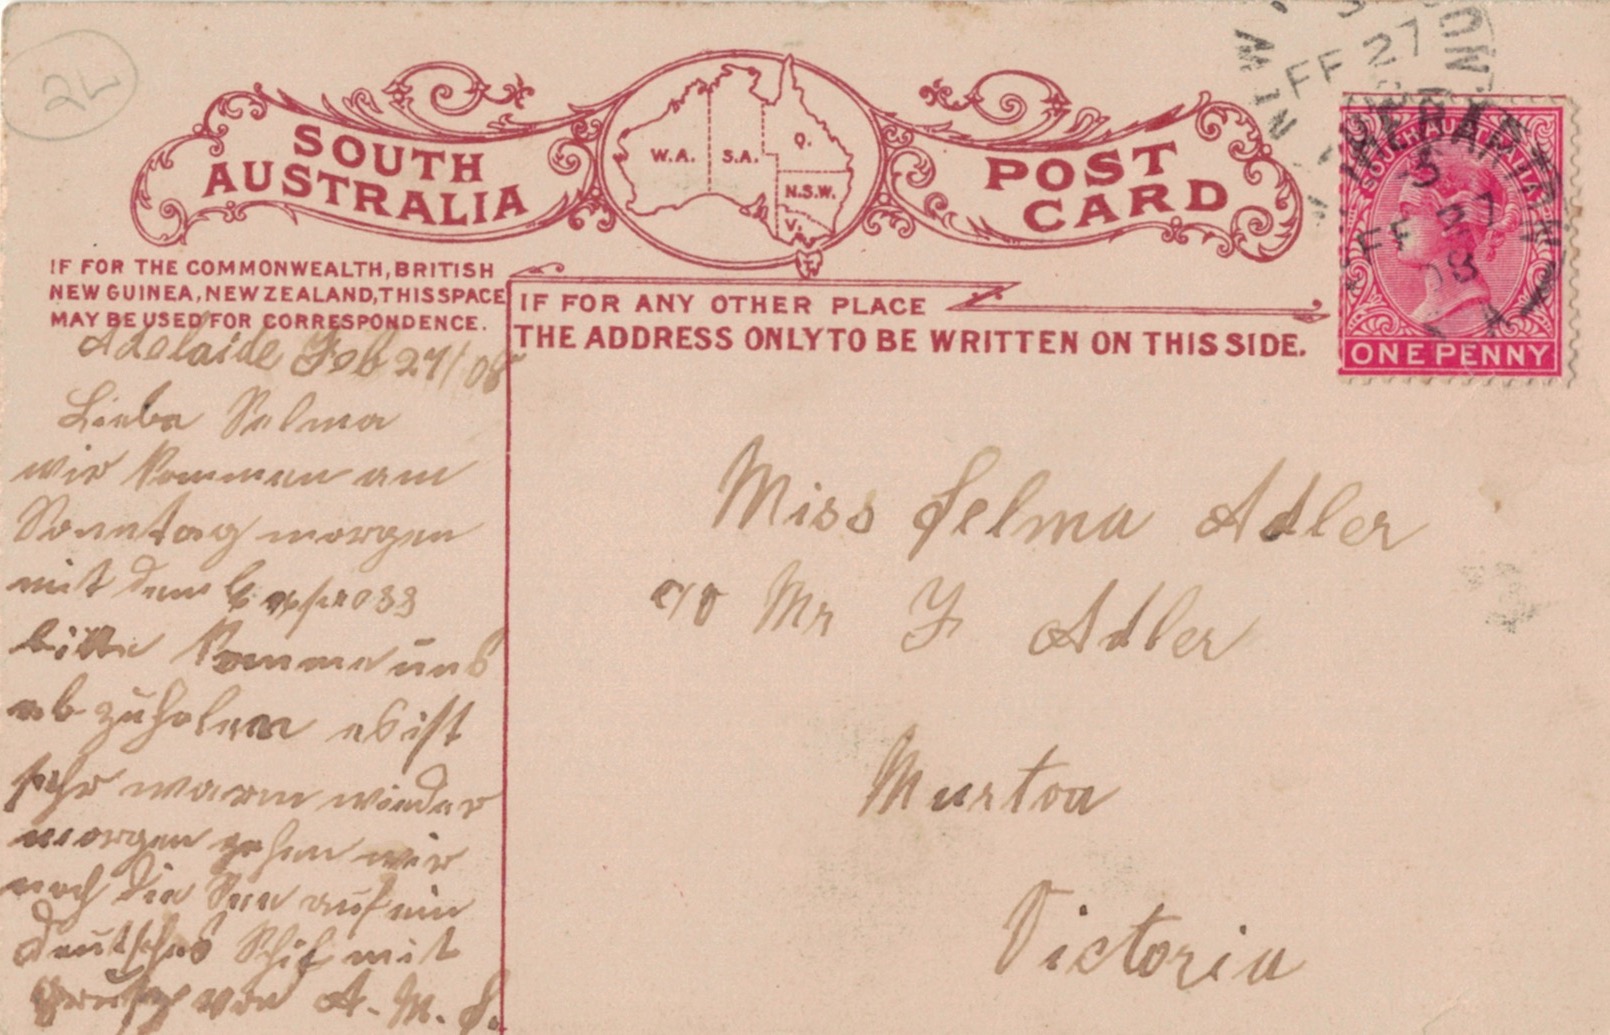 2L
SOUTH
AUSTRALIA
W.A.
S.A.
Q.
N.S.W.
V.
T.
POST
CARD
FE 27
FE 27
08
SOUTH AUSTRALIA
ONE PENNY
IF FOR THE COMMONWEALTH, BRITISH
NEW GUINEA, NEW ZEALAND, THIS SPACE
MAY BE USED FOR CORRESPONDENCE.
IF FOR ANY OTHER PLACE
THE ADDRESS ONLY TO BE WRITTEN ON THIS SIDE.
Adelaide Feb 27/08
Liebe Selma
wir kommen am
Sonntag morgen
mit dem Express
bitte komme uns
ab zuholen es ist
sehr warm wieder
morgen gehen wir
nach die See auf ein
deutsches Schif mit
Gruß von A. M. S.
Miss Selma Adler
c/o Mr F Adler
Murtoa
Victoria